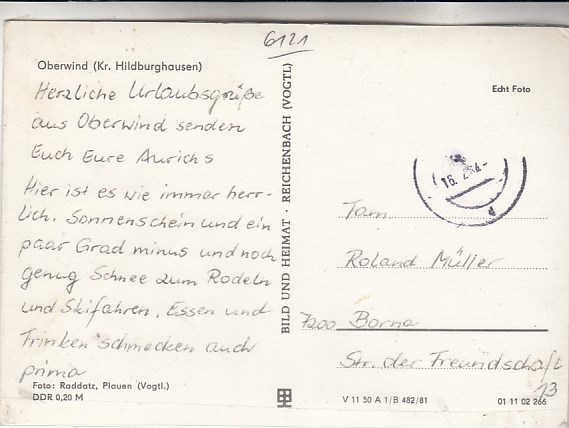 6121
Oberwind (Kr. Hildburghausen)
Herzliche Urlaubsgrüße
aus Oberwind senden
Euch Eure Aurichs
Hier ist es wie immer herr-
lich. Sonnenschein und ein
paar Grad minus und noch
genug Schnee zum Rodeln
und Skifahren. Essen und
Trinken schmecken auch
prima
Foto: Raddatz, Plauen (Vogtl.)
DDR 0,20 M
BILD UND HEIMAT · REICHENBACH (VOGTL)
Echt Foto
16. 2.
Fam.
Roland Müller
7200 Borna
Str. der Freundschaft
13
V 11 50 A 1/B 482/81
01 11 02 266